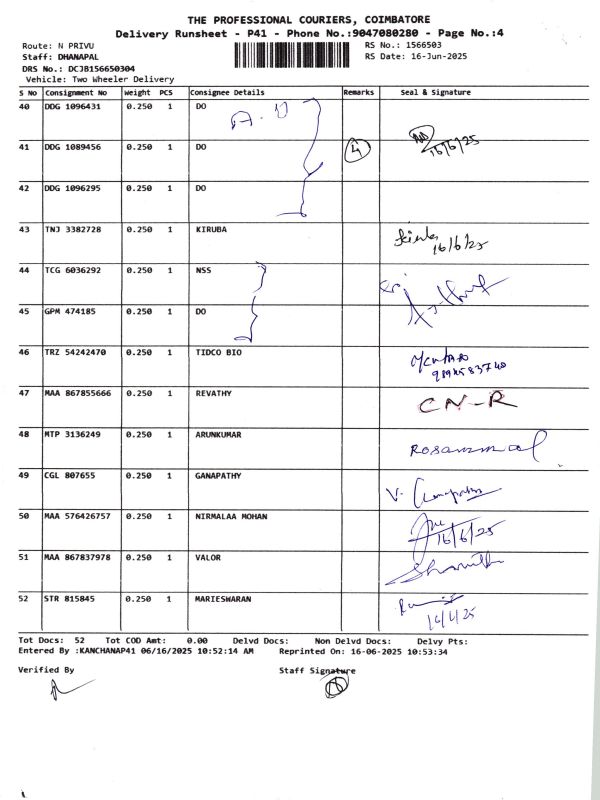 THE PROFESSIONAL COURIERS, COIMBATORE
Delivery Runsheet - P41 - Phone No.:9047080280 - Page No.:4
Route: N PRIVU RS No.: 1566503
Staff: DHANAPAL RS Date: 16-Jun-2025
DRS No.: DCJB156650304
Vehicle: Two Wheeler Delivery
S No Consignment No Weight PCS Consignee Details Remarks Seal & Signature
40 DDG 1096431 0.250 1 DO
41 DDG 1089456 0.250 1 DO 4 16/6/25
42 DDG 1096295 0.250 1 DO
43 TNJ 3382728 0.250 1 KIRUBA
16/6/25
44 TCG 6036292 0.250 1 NSS
45 GPM 474185 0.250 1 DO
46 TRZ 54242470 0.250 1 TIDCO BIO
47 MAA 867855666 0.250 1 REVATHY CN-R
48 MTP 3136249 0.250 1 ARUNKUMAR Rosammal
49 CGL 807655 0.250 1 GANAPATHY V. Ganapathy
50 MAA 576426757 0.250 1 NIRMALAA MOHAN
16/6/25
51 MAA 867837978 0.250 1 VALOR
52 STR 815845 0.250 1 MARIESWARAN
16/6/25
Tot Docs: 52 Tot COD Amt: 0.00 Delvd Docs: Non Delvd Docs: Delvy Pts:
Entered By :KANCHANAP41 06/16/2025 10:52:14 AM Reprinted On: 16-06-2025 10:53:34
Verified By Staff Signature